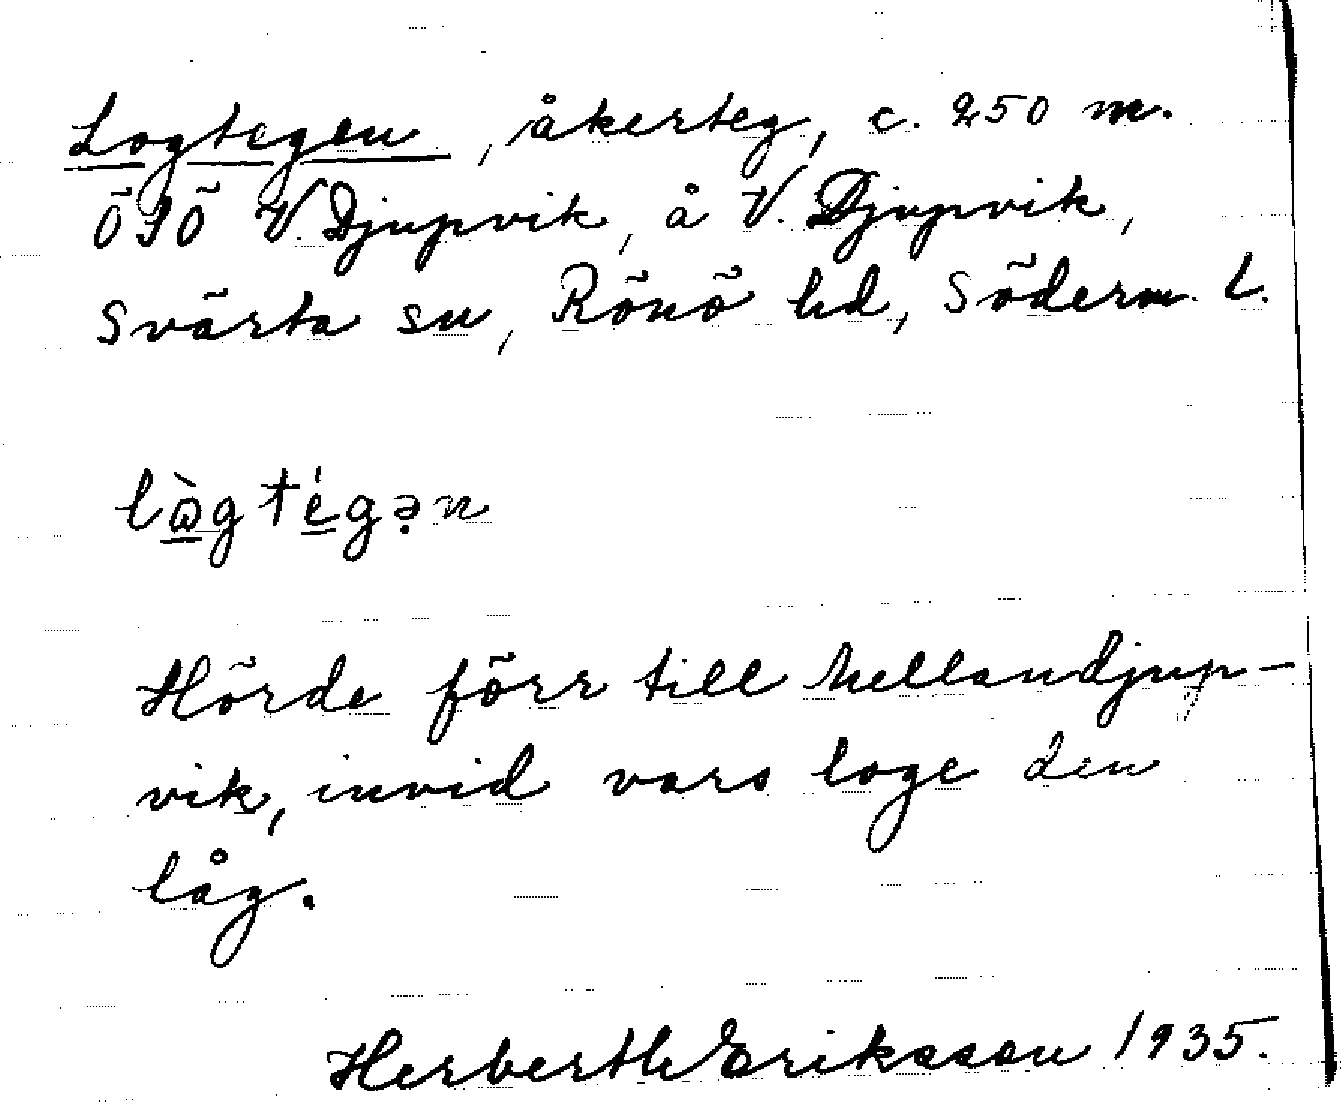 Logtegen, åkerteg, c. 250 m.
ÖSÖ V. Djupvik, å V. Djupvik,
Svärta sn, Rönö hd, Söderm. l.
lògtégən
Hörde förr till Mellandjup-
vik, invid vars loge den
låg.
Herberth Eriksson 1935.